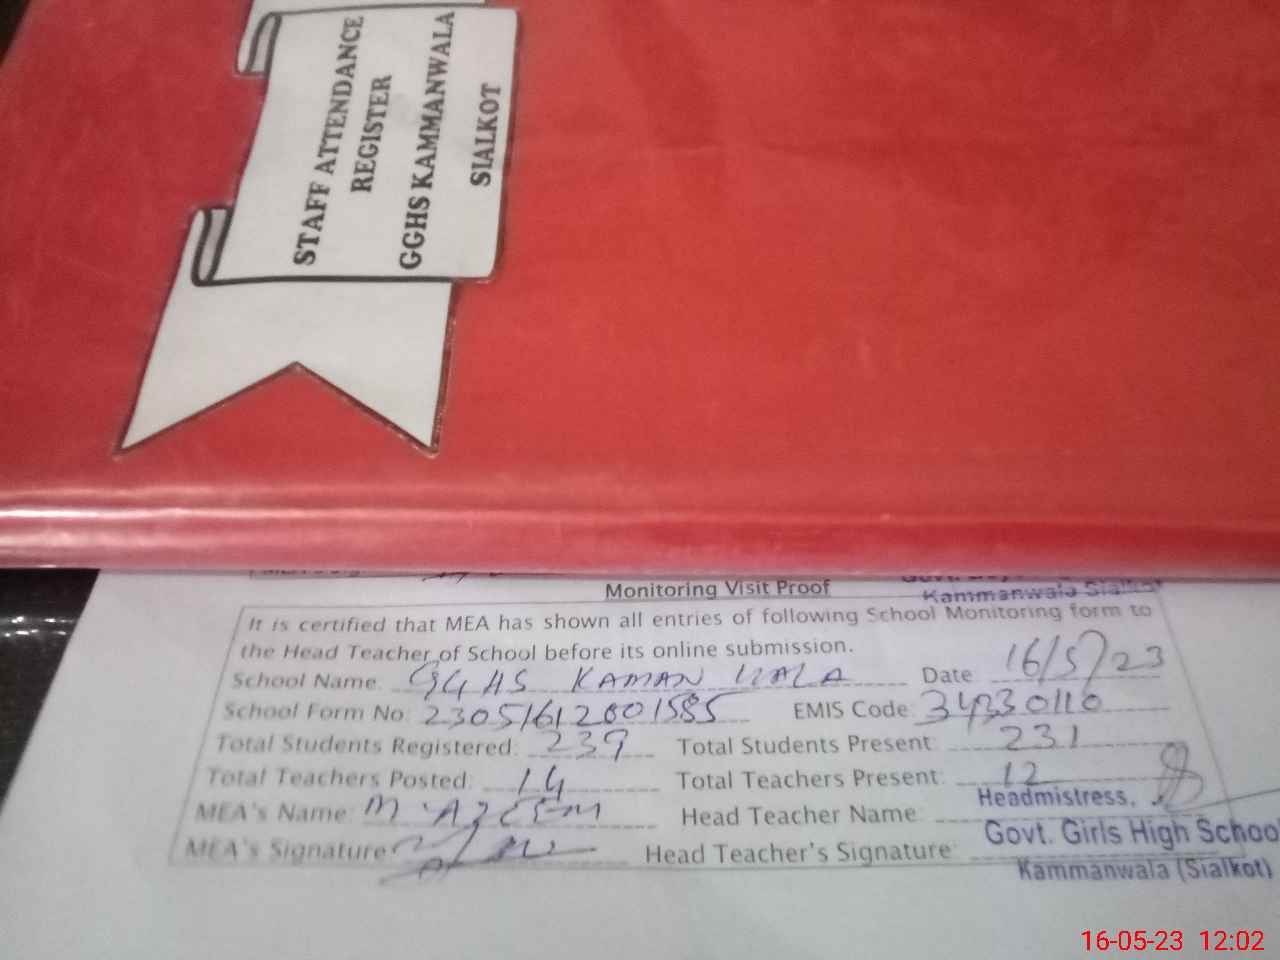 STAFF ATTENDANCE
REGISTER
GGHS KAMMANWALA
SIALKOT
Kammanwala Sialkot
Monitoring Visit Proof
It is certified that MEA has shown all entries of following School Monitoring form to
the Head Teacher of School before its online submission.
School Name: GGHS KAMAN WALA Date 16/5/23
School Form No: 23051612001585 EMIS Code: 34330110
Total Students Registered: 239 Total Students Present: 231
Total Teachers Posted: 14 Total Teachers Present: 12
MEA's Name: M AZEEM Head Teacher Name:
Headmistress,
MEA's Signature Head Teacher's Signature:
Govt. Girls High School
Kammanwala (Sialkot)
16-05-23 12:02